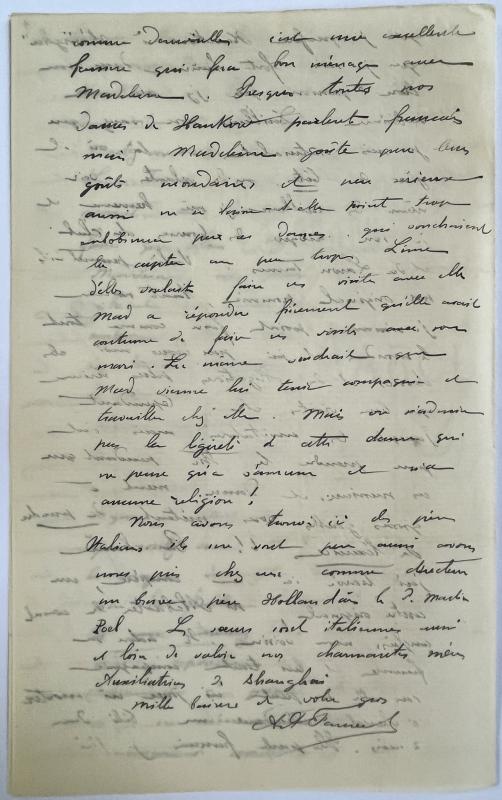 comme Danvielles c'est une excellente
femme qui fera bon ménage avec
Madeleine. Presque toutes nos
dames de Hankow parlent français
mais Madeleine goûte peu leurs
goûts mondains et peu sérieux
aussi ne se laisse-t-elle point trop
par ces dames qui voudraient
la capter un peu trop. L'une
d'elles voulait faire ses visites avec elle
Mad a répondu fièrement qu'elle avait
coutume de faire ses visites avec son
mari. La même voudrait que
Mad vienne lui tenir compagnie et
travailler chez elle. Mais on n'admire
pas la légèreté de cette dame qui
ne pense qu'à s'amuser et n'a
aucune religion!
Nous avons trouvé ici des pères
Italiens ils ne! sont pas aussi avons
nous pris chez eux comme directeur
un brave père Hollandais le P. Martin
Poel. Les sœurs sont italiennes aussi
et loin de valoir nos charmantes mères
Auxiliatrices de Shanghai
mille baisers de votre gros